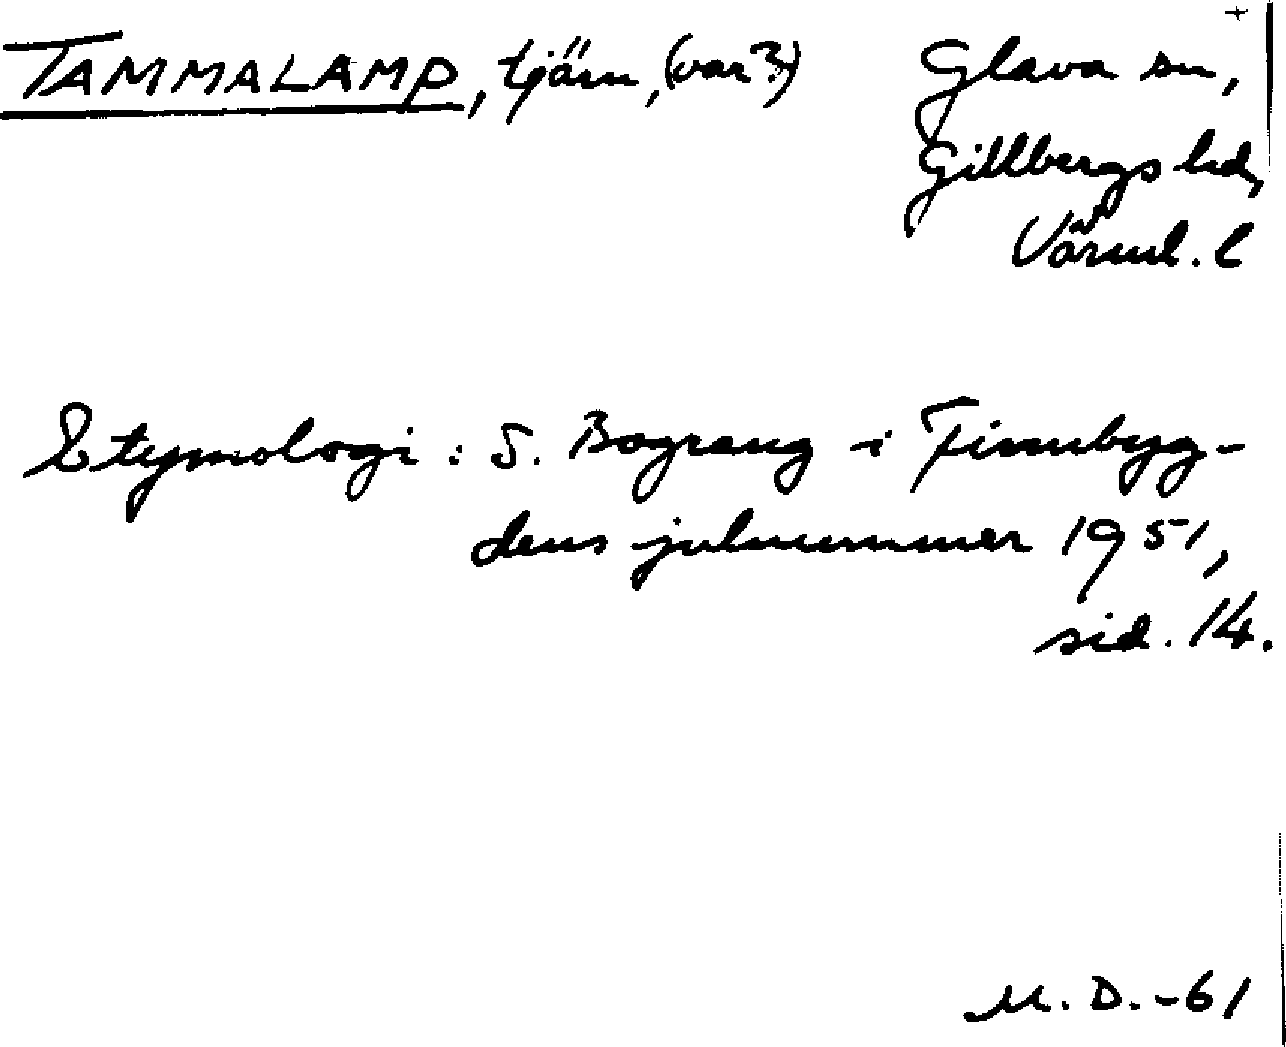 TAMMALAMP, tjärn, (var?) Glava sn,
Gillbergs hd,
Värml. l
Etymologi: S. Bograng i Finnbyg-
dens julnummer 1951,
sid. 14.
M. D. -61